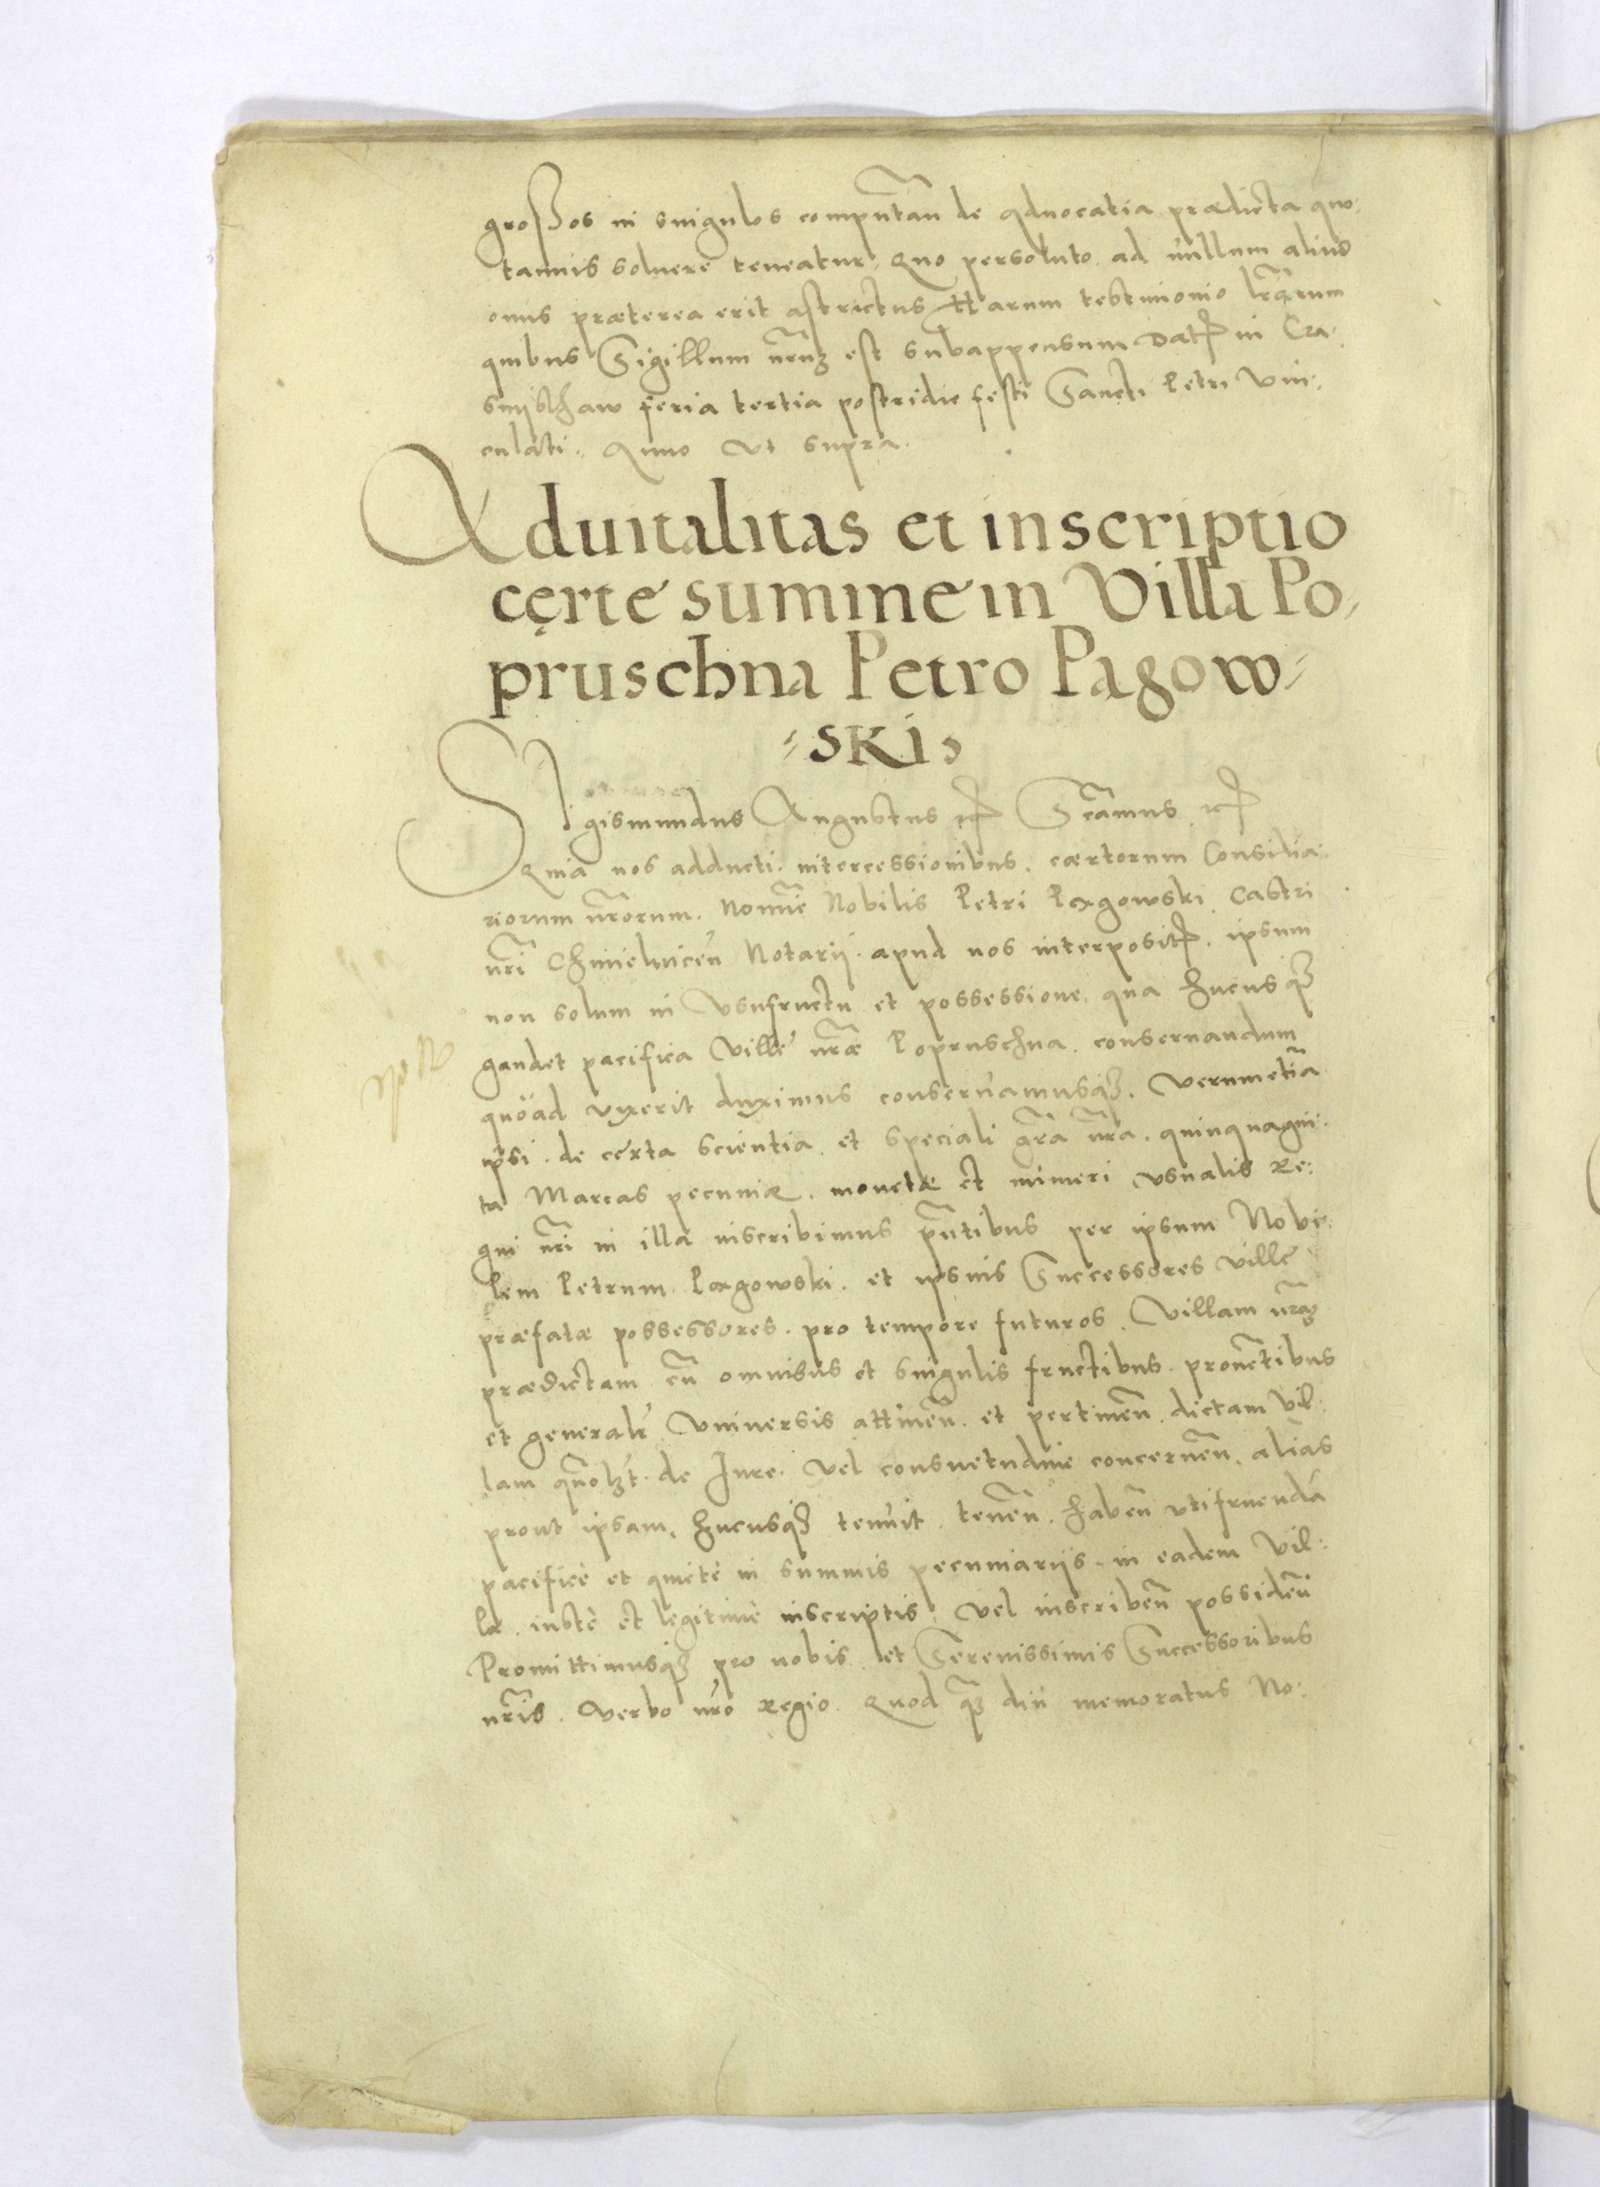 großos in singulos computãn de advocatia prædicta quo,
tannis soluere teneatur, Quo persoluto ad nullum aliud
onus præterea erit astrictus Harum testimonio lr̃arum
quibus Sigillum nr̃uʒ est subappensum Dat̃ in Cra,
snijsthaw feria tertia postridie festi Sancti Petri Vin,
culati. Anno ut supra.
Advitalitas et inscriptio
cęrte summe in Villa Po,
pruschna Petro Pagow-
-ski,
Sigismundus Augustus etc̃ Sr̃amus etc̃
Quia nos adducti intercessionibus cærtorum Consilia,
riorum nr̃orum. Nomĩe Nobilis Petri Pagowski Castri
nr̃i Chmielnicen̄ Notarij apud nos interposit̃. ipsum
non solum in Usufructu et possessione, qua hucusqʒ
gaudet pacifica Ville nr̃æ Popruschna conseruandum
quoad vixerit duximus conseruamusqʒ. Verumetiã
ipsi de certa scientia et speciali gr̃a nr̃a quinquagin,
ta Marcas pecuniæ monetæ et numeri usualis Re,
gni nr̃i in illa inscribimus pñtibus per ipsum Nobi,
lem Petrum Pagowski et ipsius Successores Ville
præfatæ possessores pro tempore futuros Villam nr̃aʒ
prædictam cũ omnibus et singulis fructibus prouẽtibus
et generalr̃ Uniuersis attinẽn et pertinẽn dictam Vil,
lam quõlʒt de Iure Vel consuetudine concernẽn alias
prout ipsam hucusqʒ tenuit tenẽn habẽn utifruendã
pacifice et quiete in summis pecuniariis in eadem Vil,
la iuste et legitime inscriptis Vel inscribẽn possidẽn
Promittimusqʒ pro nobis et Serenissimis Successoribus
nr̃is Verbo nr̃o Regio Quod qʒ diu memoratus No,